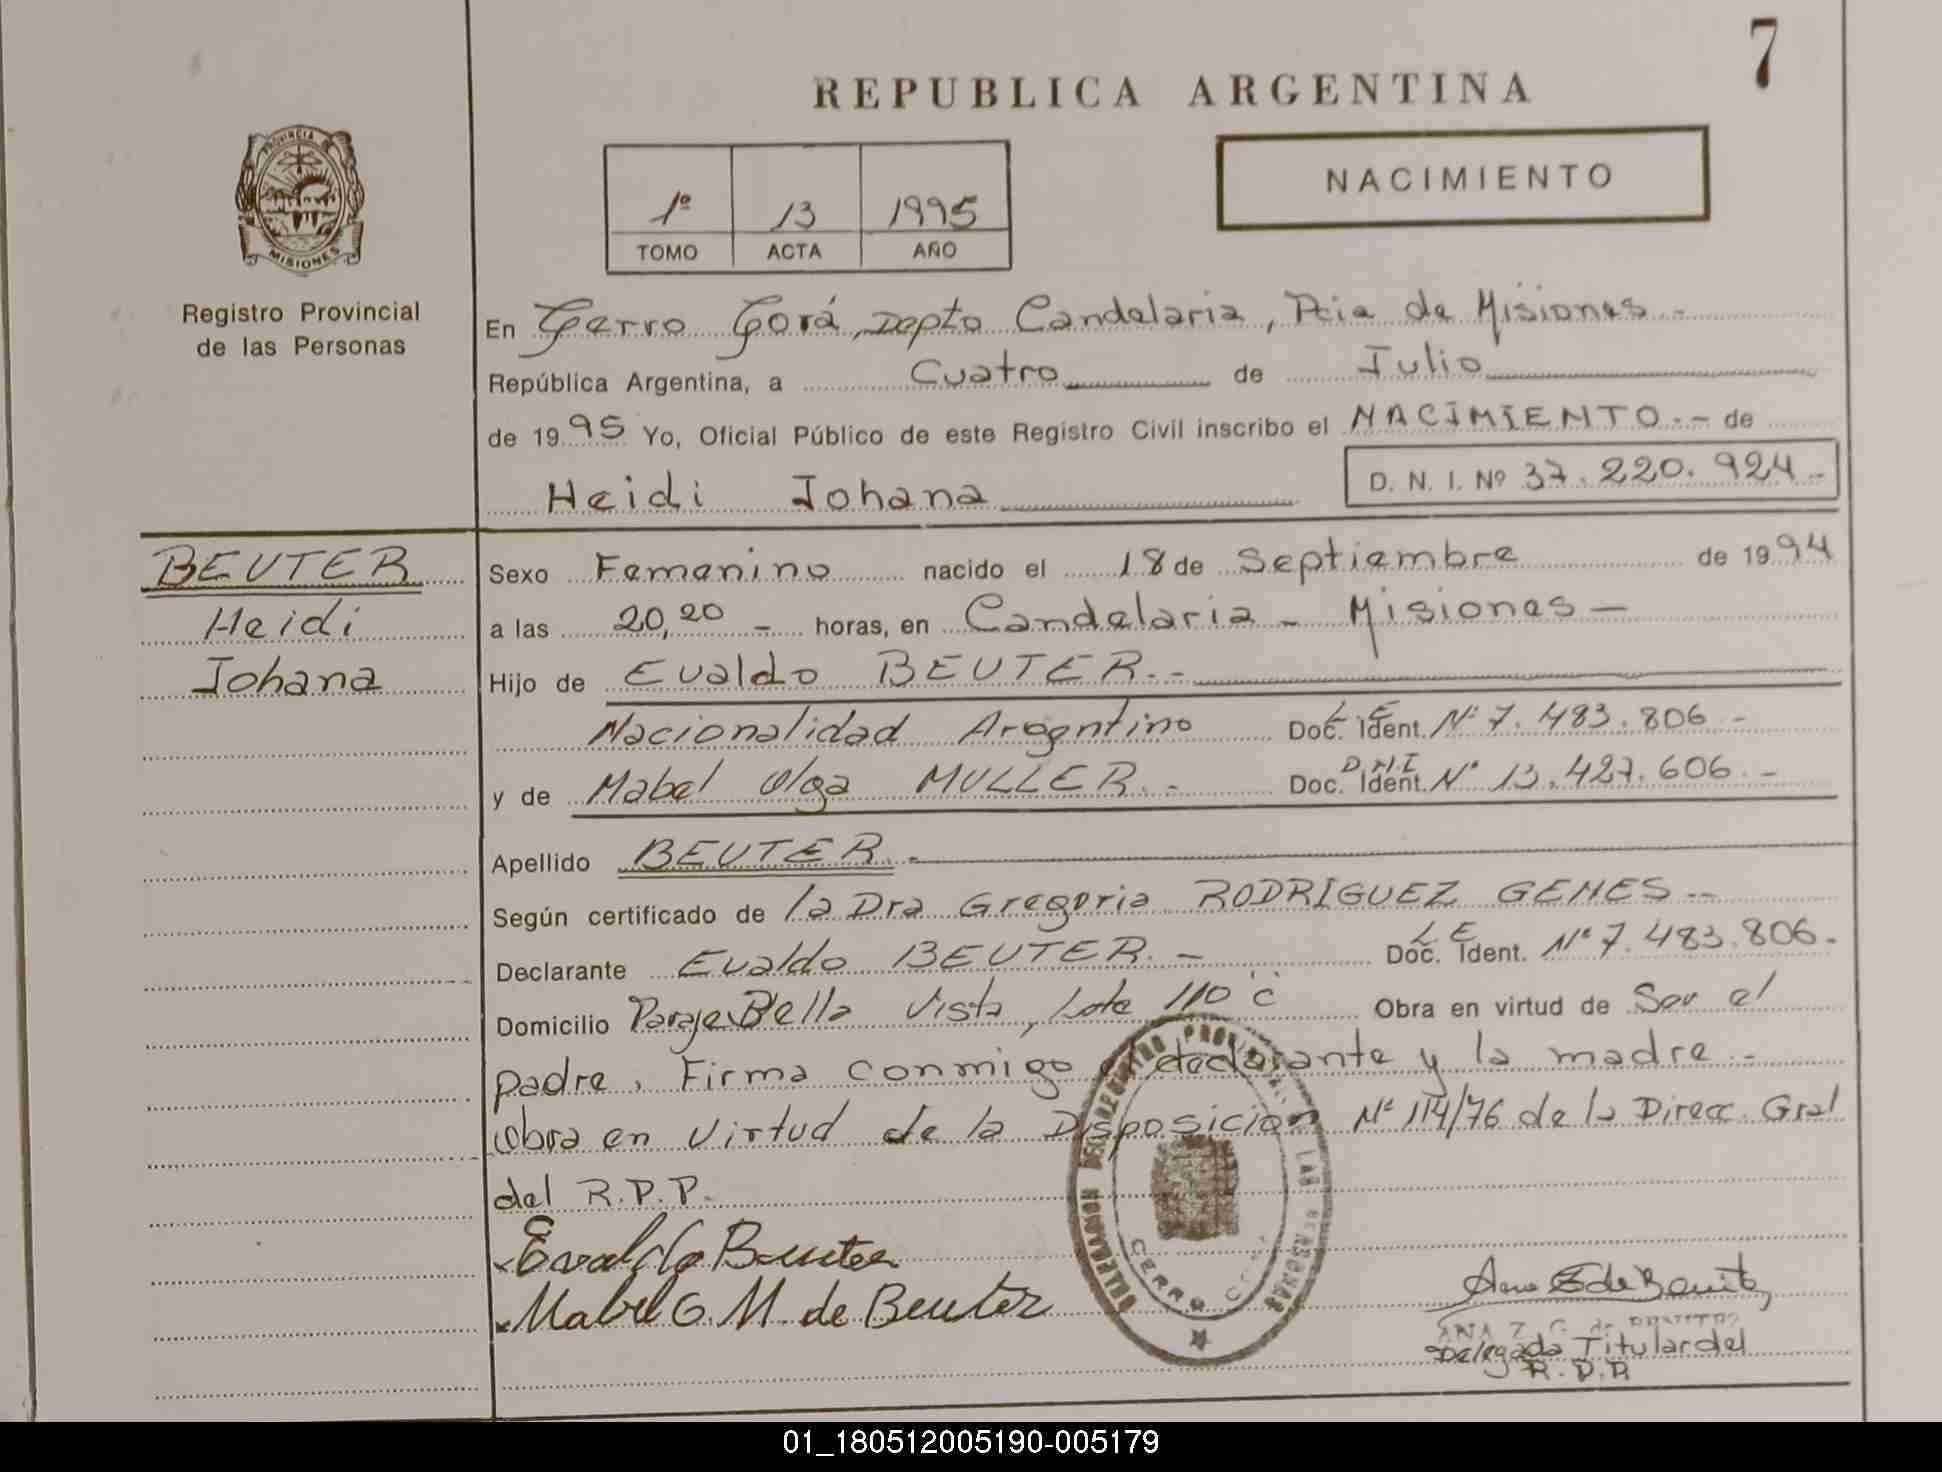 7
REPUBLICA ARGENTINA
NACIMIENTO
1º 13 1995
TOMO ACTA AÑO
PROVINCIA
MISIONES
Registro Provincial
de las Personas
En Cerro Corá, Depto Candelaria, Pcia de Misiones.-
República Argentina, a Cuatro de Julio
de 1995 Yo, Oficial Público de este Registro Civil inscribo el NACIMIENTO.- de
Heidi Johana D. N. I. Nº 37.220.924-
BEUTER
Heidi
Johana
Sexo Femenino nacido el 18 de Septiembre de 1994
a las 20,20 - horas, en Candelaria - Misiones -
Hijo de Evaldo BEUTER.-
Nacionalidad Argentino Doc. Ident. L E Nº 7.483.806 -
y de Mabel Olga MULLER.- Doc. Ident. D.N.I Nº 13.427.606.-
Apellido BEUTER.-
Según certificado de la Dra Gregoria RODRIGUEZ GENES.-
Declarante Evaldo BEUTER.- Doc. Ident. L E Nº 7.483.806.
Domicilio Paraje Bella Vista, Lote 110 "C" Obra en virtud de Ser el
padre, Firma conmigo el declarante y la madre.-
Obra en Virtud de la Disposición Nº 114/76 de la Direcc. Gral
del R.P.P.
Evaldo Beuter
Mabel O. M. de Beuter
DELEGACION DEL REGISTRO PROVINCIAL DE LAS PERSONAS
CERRO CORA
Delegada Titular del
R.P.P.
01_180512005190-005179